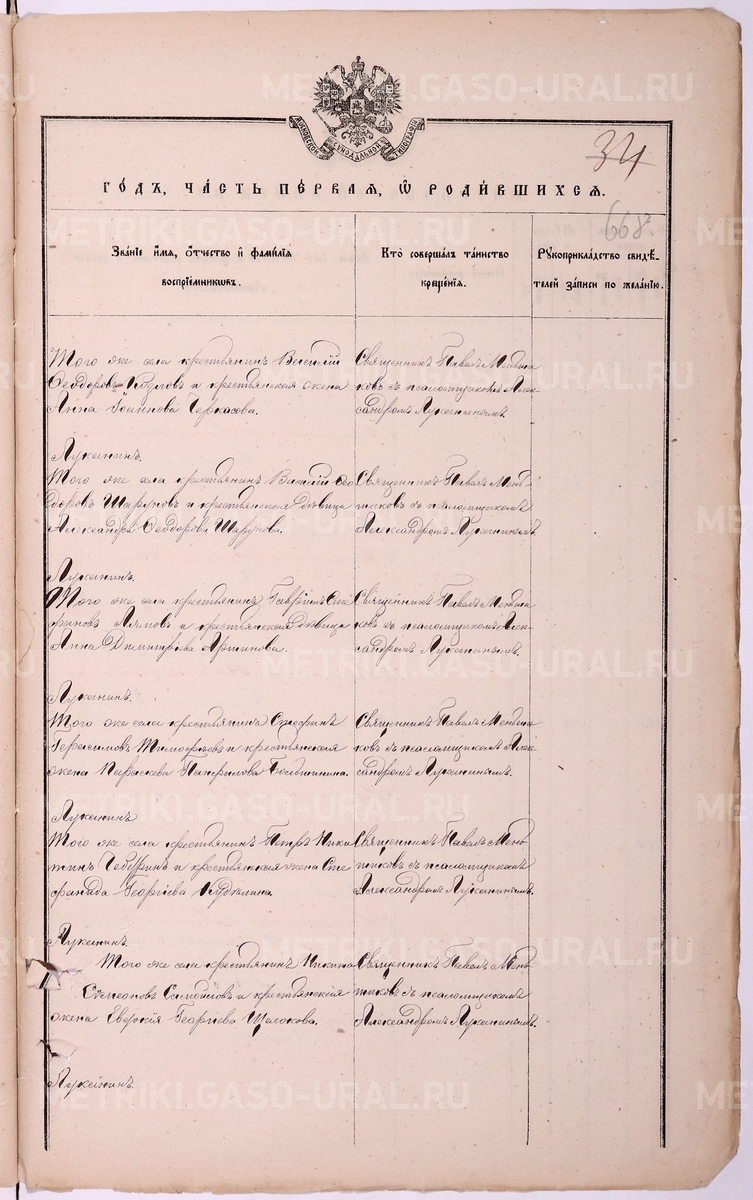 МОСКОВСКОЙ СѴНОДАЛЬНОЙ ТИПОГРАФІИ
34
ГОДЪ, ЧАСТЬ ПЕРВАЯ, Ѿ РОДИВШИХСЯ.
668
Званіе имя, отчество и фамилія
воспріемниковъ.
Кто совершалъ таинство
крещенія.
Рукоприкладство свидѣ-
телей записи по желанію.
Того же села крестьянинъ Василій
Ѳеодоровъ Козловъ и крестьянская жена
Анна Іоаннова Черкасова.
Священникъ Павелъ Меньши
ковъ съ псаломщикомъ Алек
сандромъ Лукинымъ.
Лукинъ.
Того же села крестьянинъ Ѳео
доровъ Шаруновъ и крестьянская дѣвица
Александра Ѳеодорова Шарунова.
Священникъ Павелъ Мень
шиковъ съ псаломщикомъ
Александромъ Лукинымъ.
Лукинъ.
Того же села крестьянинъ Гавріилъ Сте
фановъ и крестьянская дѣвица
Анна Димитріева
Священникъ Павелъ Меньши
ковъ съ псаломщикомъ Алек-
сандромъ Лукинымъ.
Лукинъ.
Того же села крестьянинъ Стефанъ
Герасимовъ Тимофѣевъ и крестьянская
жена Параскева Панфилова
Священникъ Павелъ Меньши
ковъ съ псаломщикомъ Алек-
сандромъ Лукинымъ.
Лукинъ
Того же села крестьянинъ Петръ Ники
тинъ и крестьянская жена Сте
фанида Георгіева
Священникъ Павелъ Мень
шиковъ съ псаломщикомъ
Александромъ Лукинымъ.
Лукинъ.
Того же села крестьянинъ Никита
Симеоновъ и крестьянская
жена Евдокія Георгіева Щелокова.
Священникъ Павелъ Мень
шиковъ съ псаломщикомъ
Александромъ Лукинымъ.
Лукинъ.
METRIKI.GASO-URAL.RU